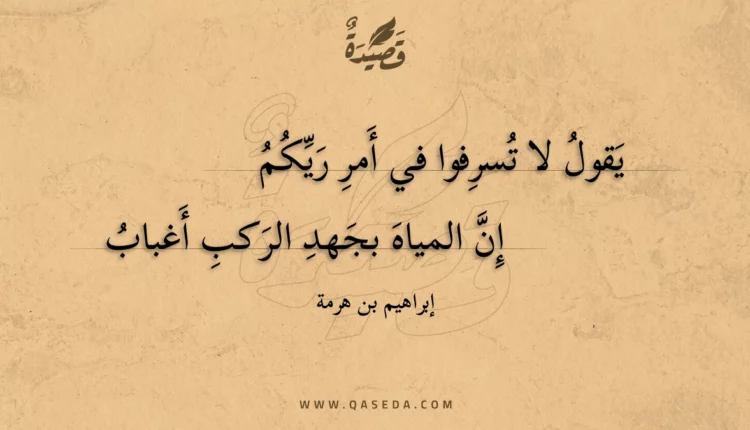 قَصِيدَةٌ
يَقولُ لا تُسرِفوا في أَمرِ رَيِّكُمُ
إِنَّ المياهَ بجَهدِ الرَكبِ أَغبابُ
إبراهيم بن هرمة
WWW.QASEDA.COM